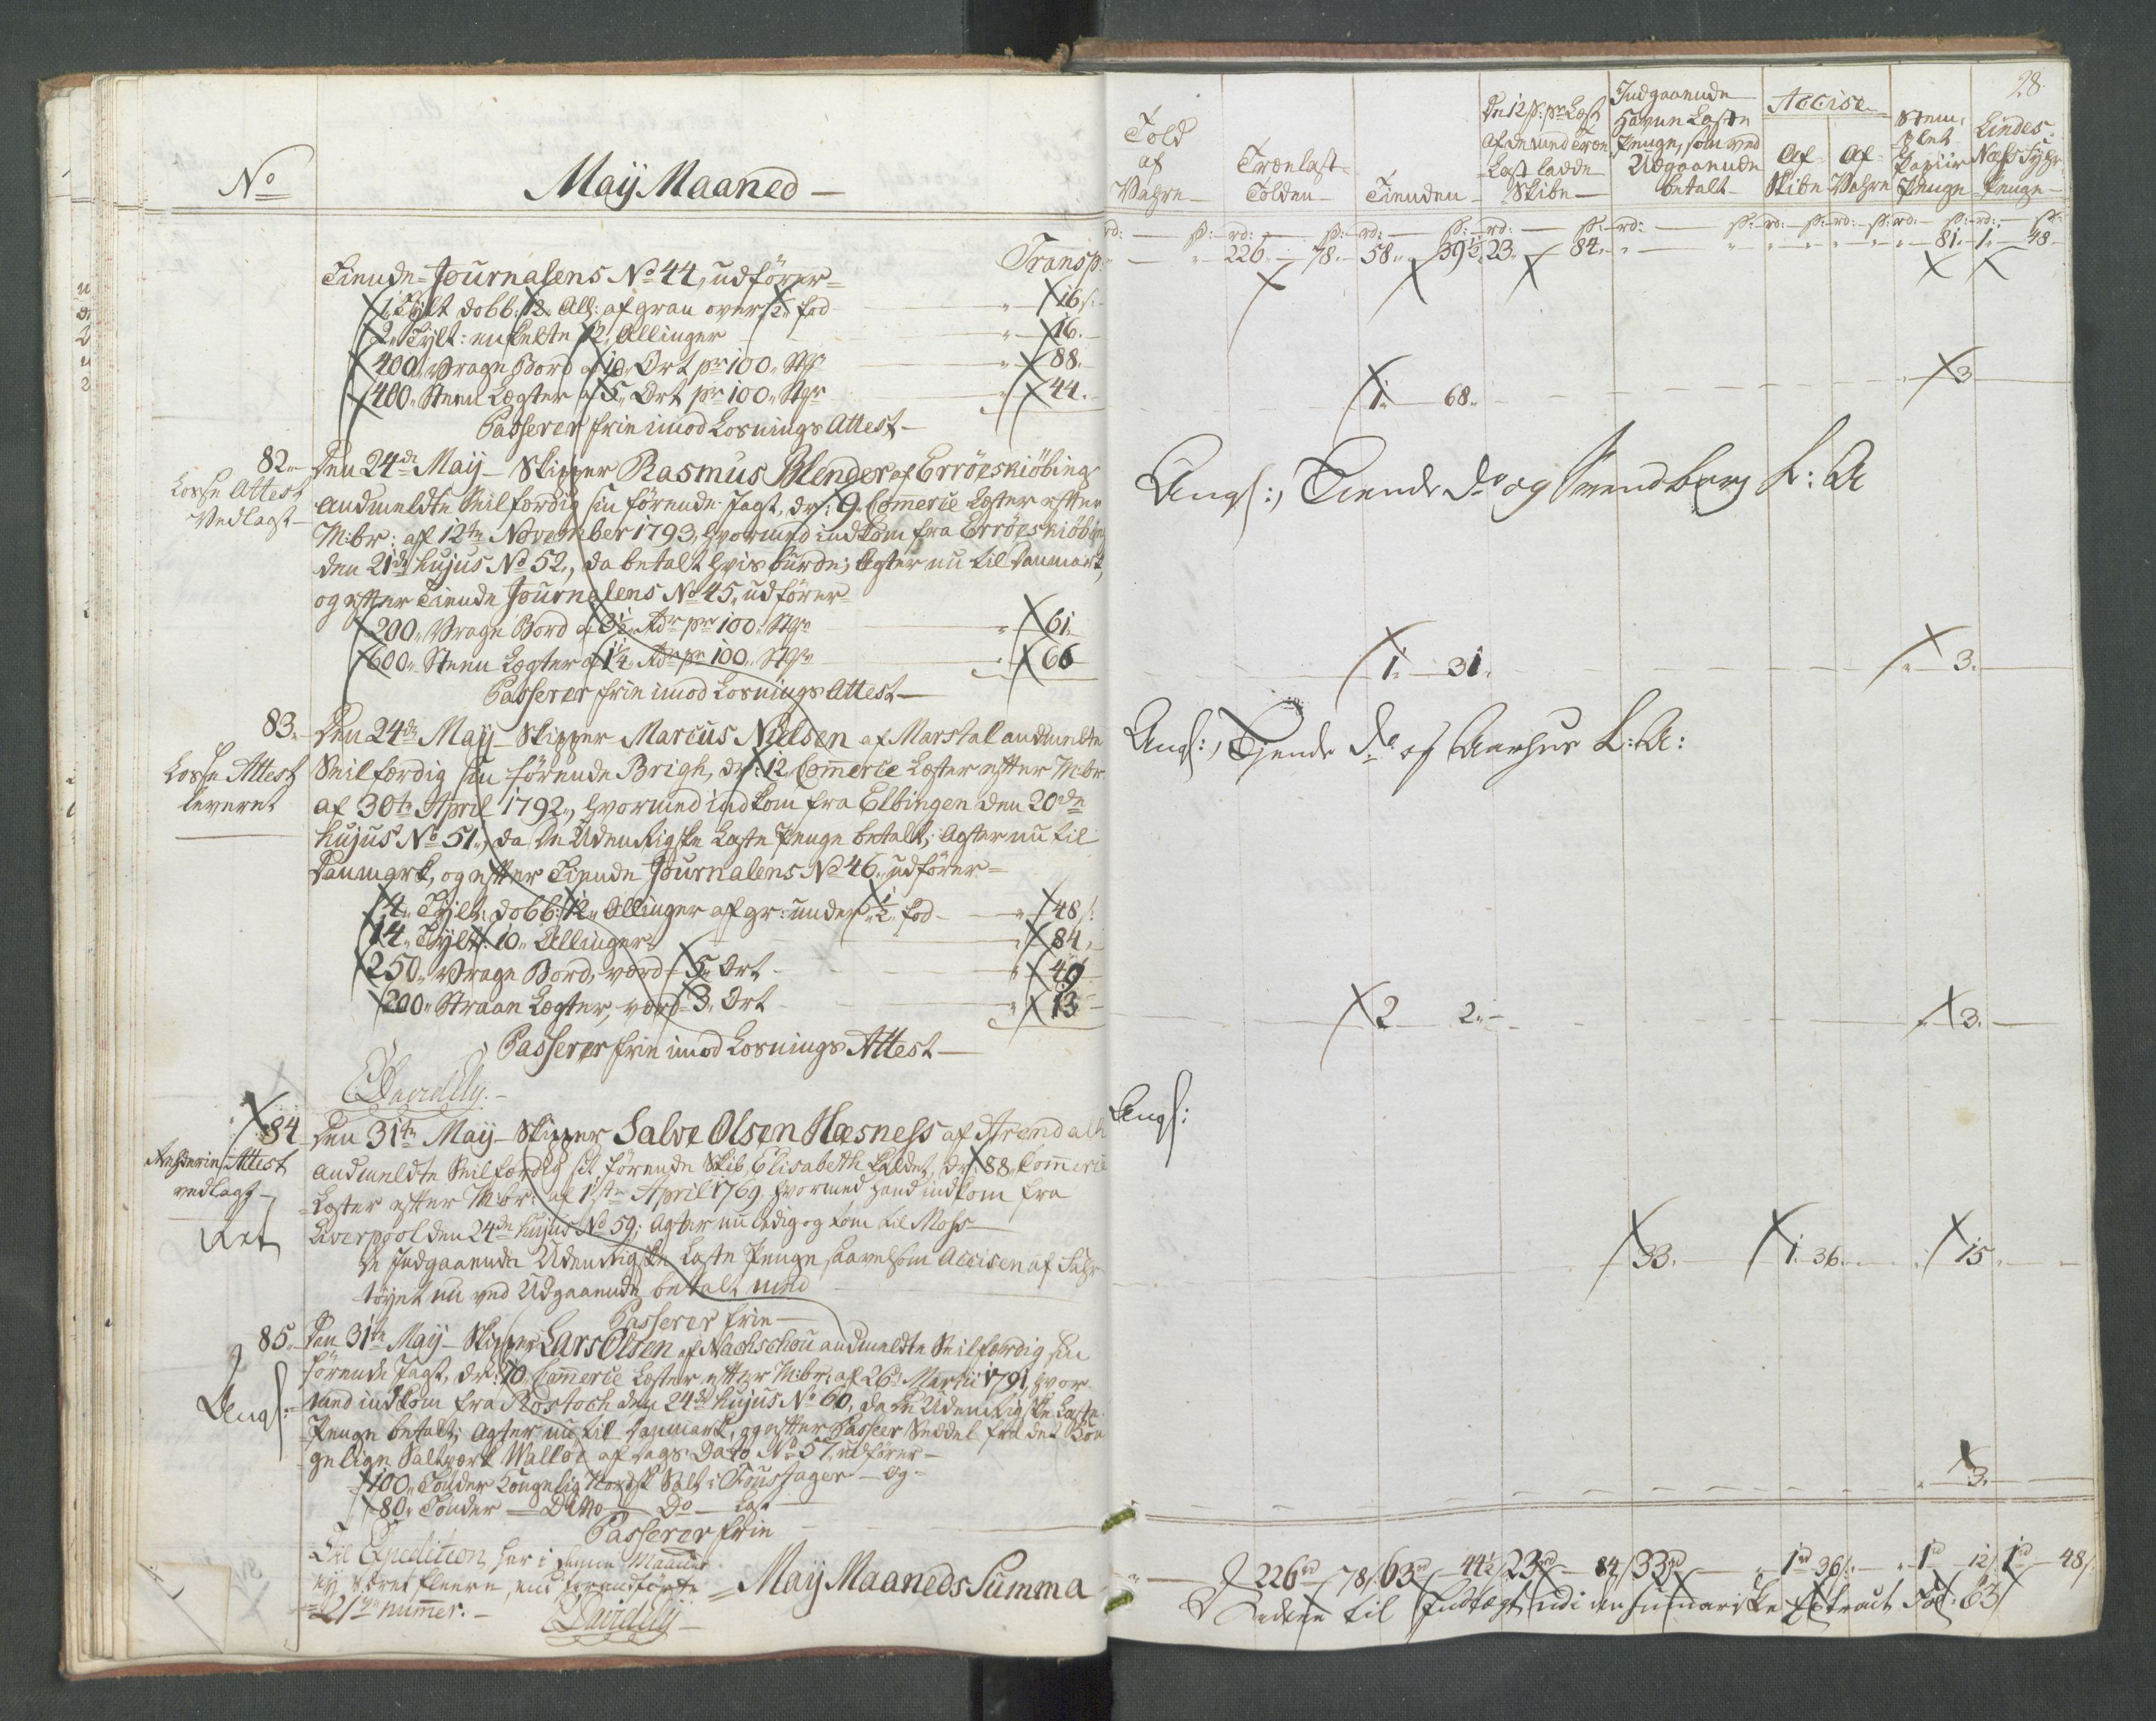 No
Maij Maaned
Transp:
Tiende-Journalens No 44, udfører
1 Tylt dobb: 12 All: af gran over ½ fod 16 s:
2 Tylt: enkelte 12 Allinger 16.
400 Vrage Bord a 10 Ort pr 100 Stkr 88.
400 Steen Lægter a 5 Ort pr 100 Stkr 44.
Passerer frie imod Losnings Attest
82
Losse Attest
Vedlagt
Den 24de Maij Skipper Rasmus Blender af Erröeskiöbing
andmeldte Seilfærdig sin førende Jagt, dr: 9 Commerce Læster efter
M:br: af 12te November 1793, hvormed indkom fra Erröeskiöbing
den 21de hujus No 52, da betalt hvis burde; Agter nu til Danmark,
og efter Tiende Journalens No 45 udfører
200 Vrage Bord a 3½ Rdr pr 100 Stkr 61.
600 Steen Lægter a 1¼ Rdr pr 100 Stkr 66
Passerer frie imod Losnings Attest
83
Losse Attest
leveret
Den 24de Maij Skipper Marcus Nielsen af Marstal andmeldte
Seilfærdig sin førende Brigh, dr: 12 Commerce Læster efter M:br
af 30te April 1792, hvormed indkom fra Elbingen den 20de
hujus No 51, da De Udenrigske Laste Penge betalt; Agter nu til
Danmark, og efter Tiende Journalens No 46 udfører
4 Tylt: dobb: 12 Allinger af gr: under ½ fod 48 s:
14 Tylt: 10 Allinger 84
250 Vrage Bord, værd 5 Ort 40
200 Straae Lægter, værd 3 Ort 13
Passerer frie imod Losnings Attest
84
Attest
vedlagt
Den 31te Maij Skipper Salve Olsen Hæsness af Arendall
andmeldte Seilfærdig sit førende Skib, Elisabeth kaldet, dr: 88 Commerce
Læster efter M:br: af 1ste April 1769, hvormed hand indkom fra
Liverpool den 24de hujus No 59; Agter nu ledig og tom til Moss
De Indgaaende Udenrigske Laste Penge saavelsom Accisen af Fahr
töyet nu ved Udgaaende betalt med
Passerer frie
85
Angf:
Den 31te Maij Skipper Lars Olsen af Nachschou andmeldte Seilfærdig sin
førende Jagt, dr: 10 Commerce Læster efter M:br: af 26de Martii 1791, hvor
med indkom fra Rostoch den 24de hujus No 60, da De Udenrigske Laste
Penge betalt; Agter nu til Danmark, og efter Passeer Seddel fra det Kon
gelige Saltværk Walløe af dags Dato No 57 udfører
100 Tønder Kongelig Norsk Salt i Foustager og
80 Tønder Ditto Do Last
Passerer frie
Til Expedition her i denne Maaned
ey været fleere, end forandførte
21 nummer.
Maij Maaneds Summa
28
Told af Vahre
Trælast Tolden
Tienden
De 12 s: pr Læst af de med Træe Last ladde Skibe
Indgaaende Havne Laste Penge, som ved Udgaaende betalt
Accise
Af Skibe
Af Vahre
Stemplet Papiir Penge
Lindes Næss Fyhr Penge
226 78 58 39½ 23 84 81 1 48
1 68 3
Angf:, Tiende Do og Svendborg L: A
1 31 3
Angf:, Tiende Do og Aarhus L: A:
2 2 3
Angf:
33 1 36 15
3
226rd 78 s 63rd 44½ 23rd 84 33rd 1rd 36 s 1rd 12 1rd 48 s
til Indtægt udi den Summariske Extract Fol: 63